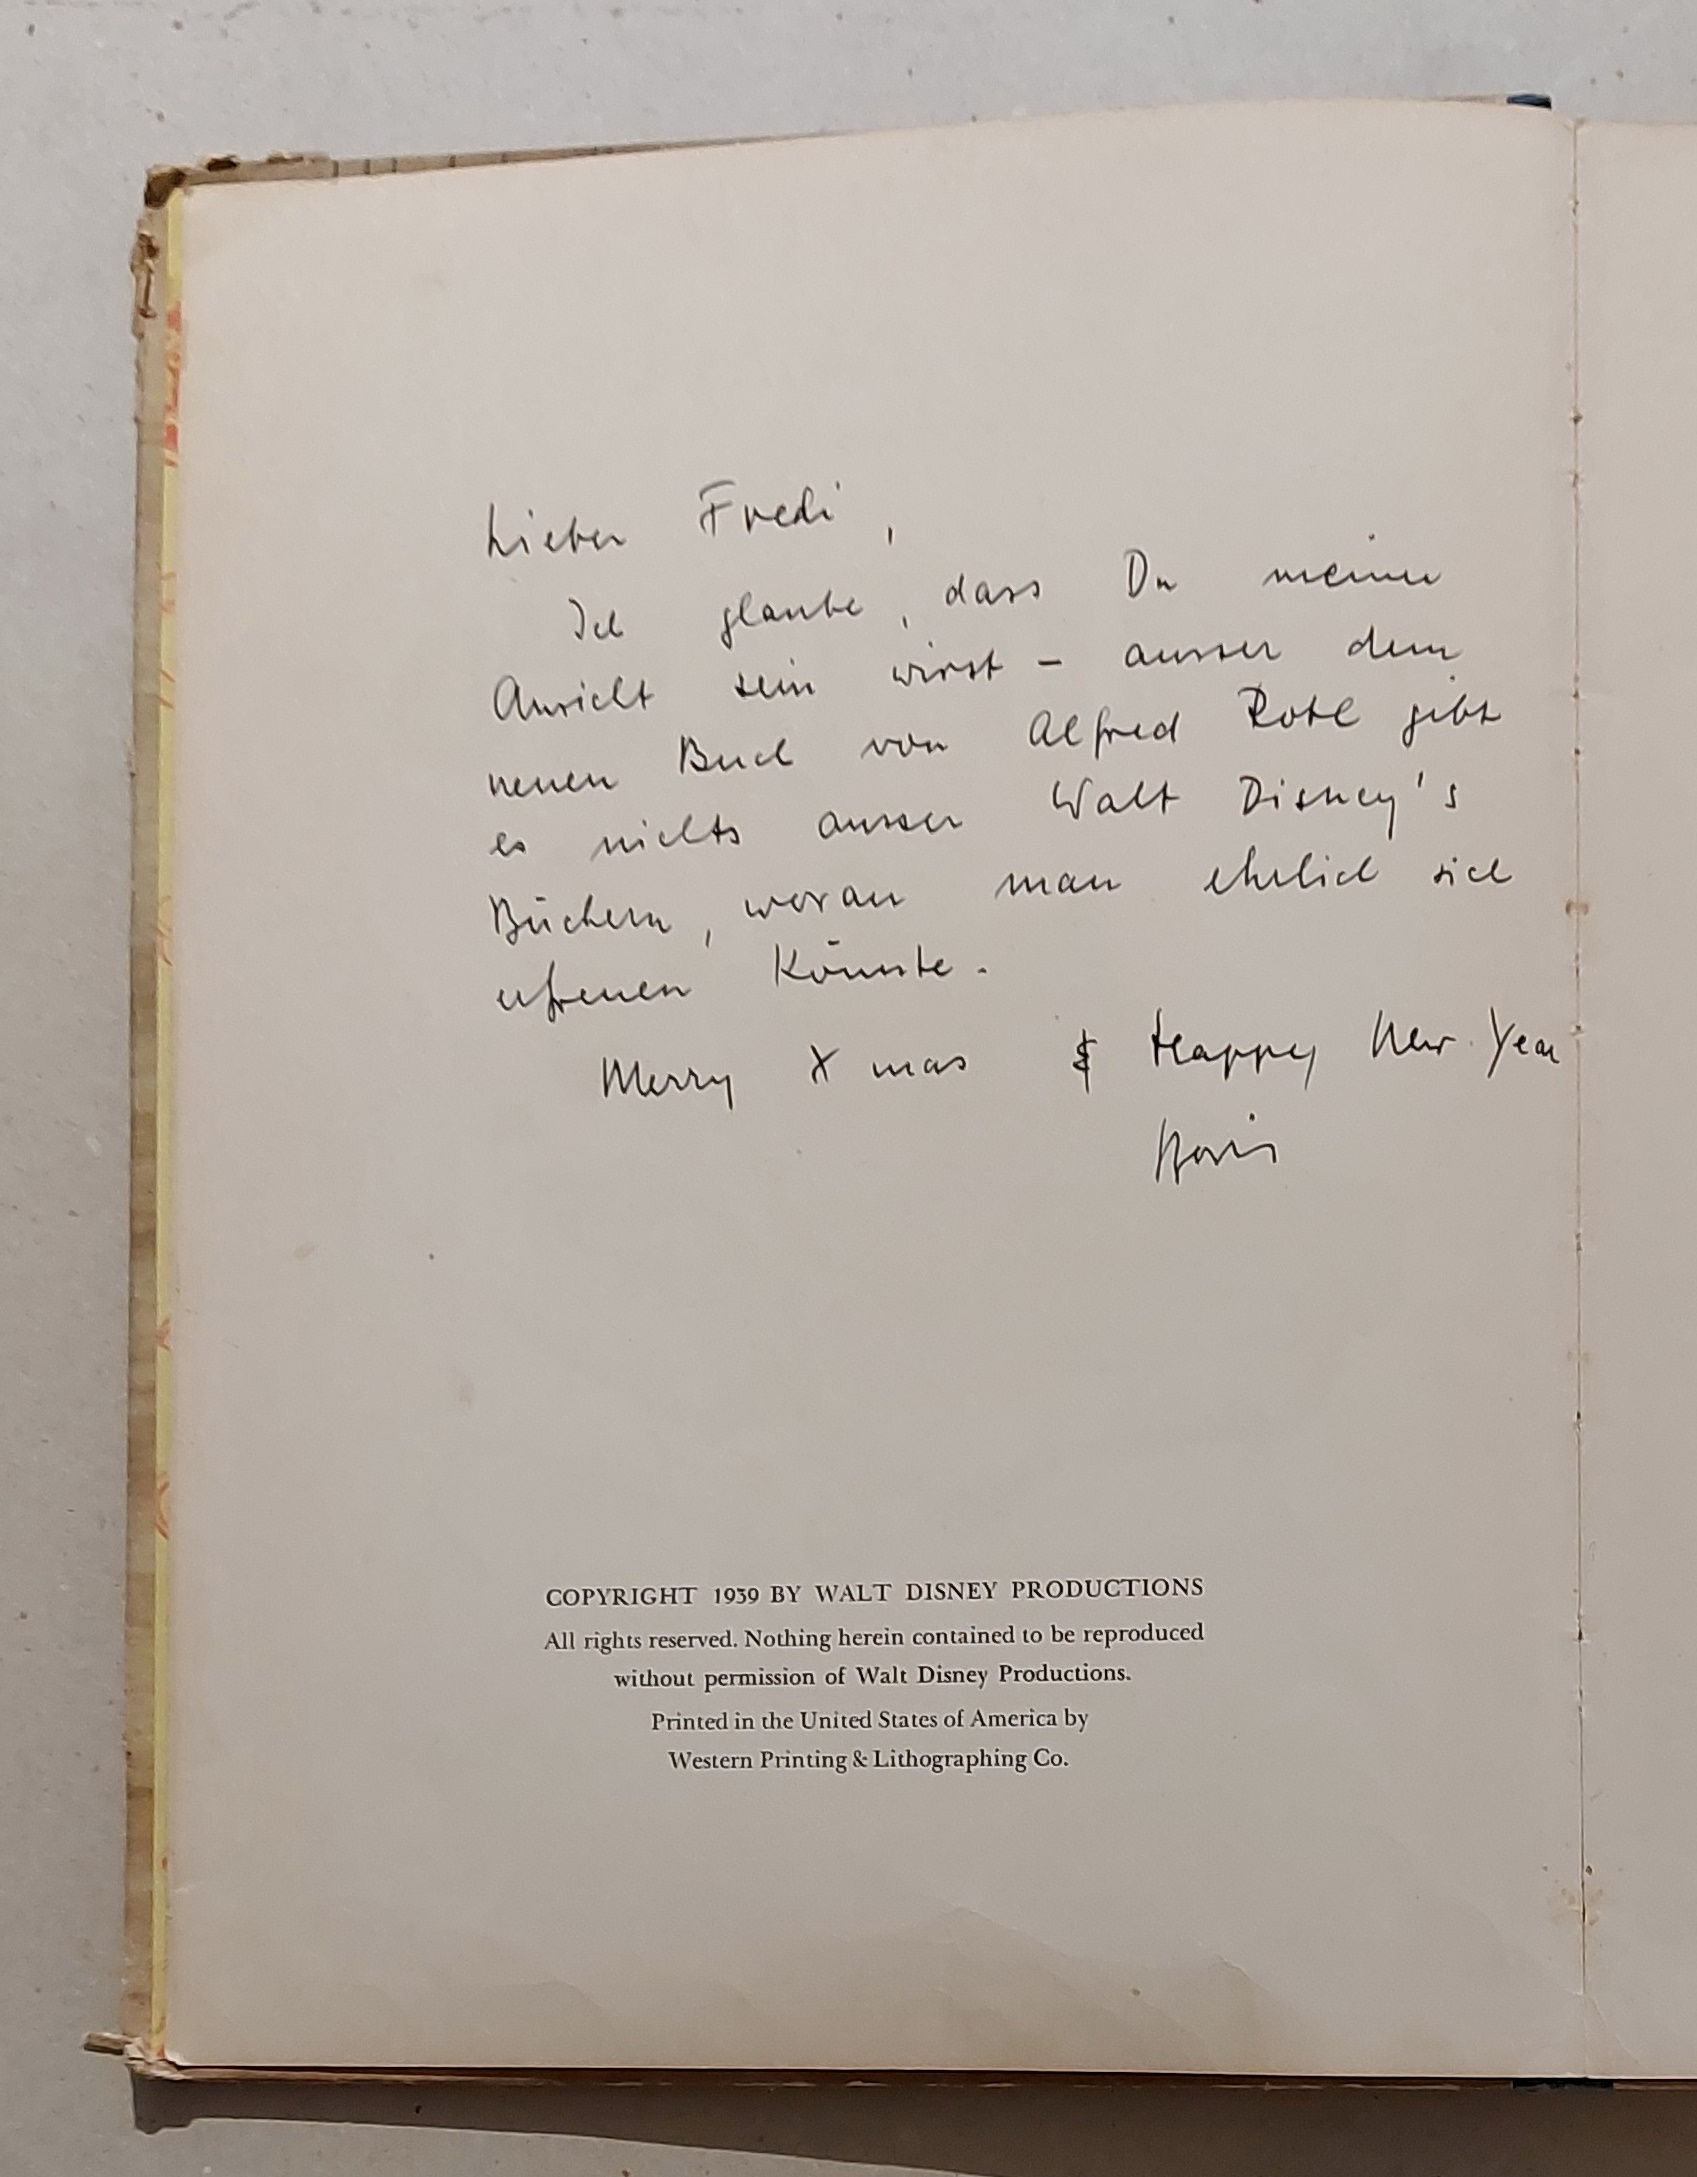 Lieber Fredi,
Ich glaube, dass Du meiner
Ansicht sein wirst – ausser dem
neuen Buch von Alfred Roth gibt
es nichts ausser Walt Disney's
Büchern, woran man ehrlich sich
erfreuen könnte.
Merry Xmas & Happy New Year
Boris
COPYRIGHT 1939 BY WALT DISNEY PRODUCTIONS
All rights reserved. Nothing herein contained to be reproduced
without permission of Walt Disney Productions.
Printed in the United States of America by
Western Printing & Lithographing Co.